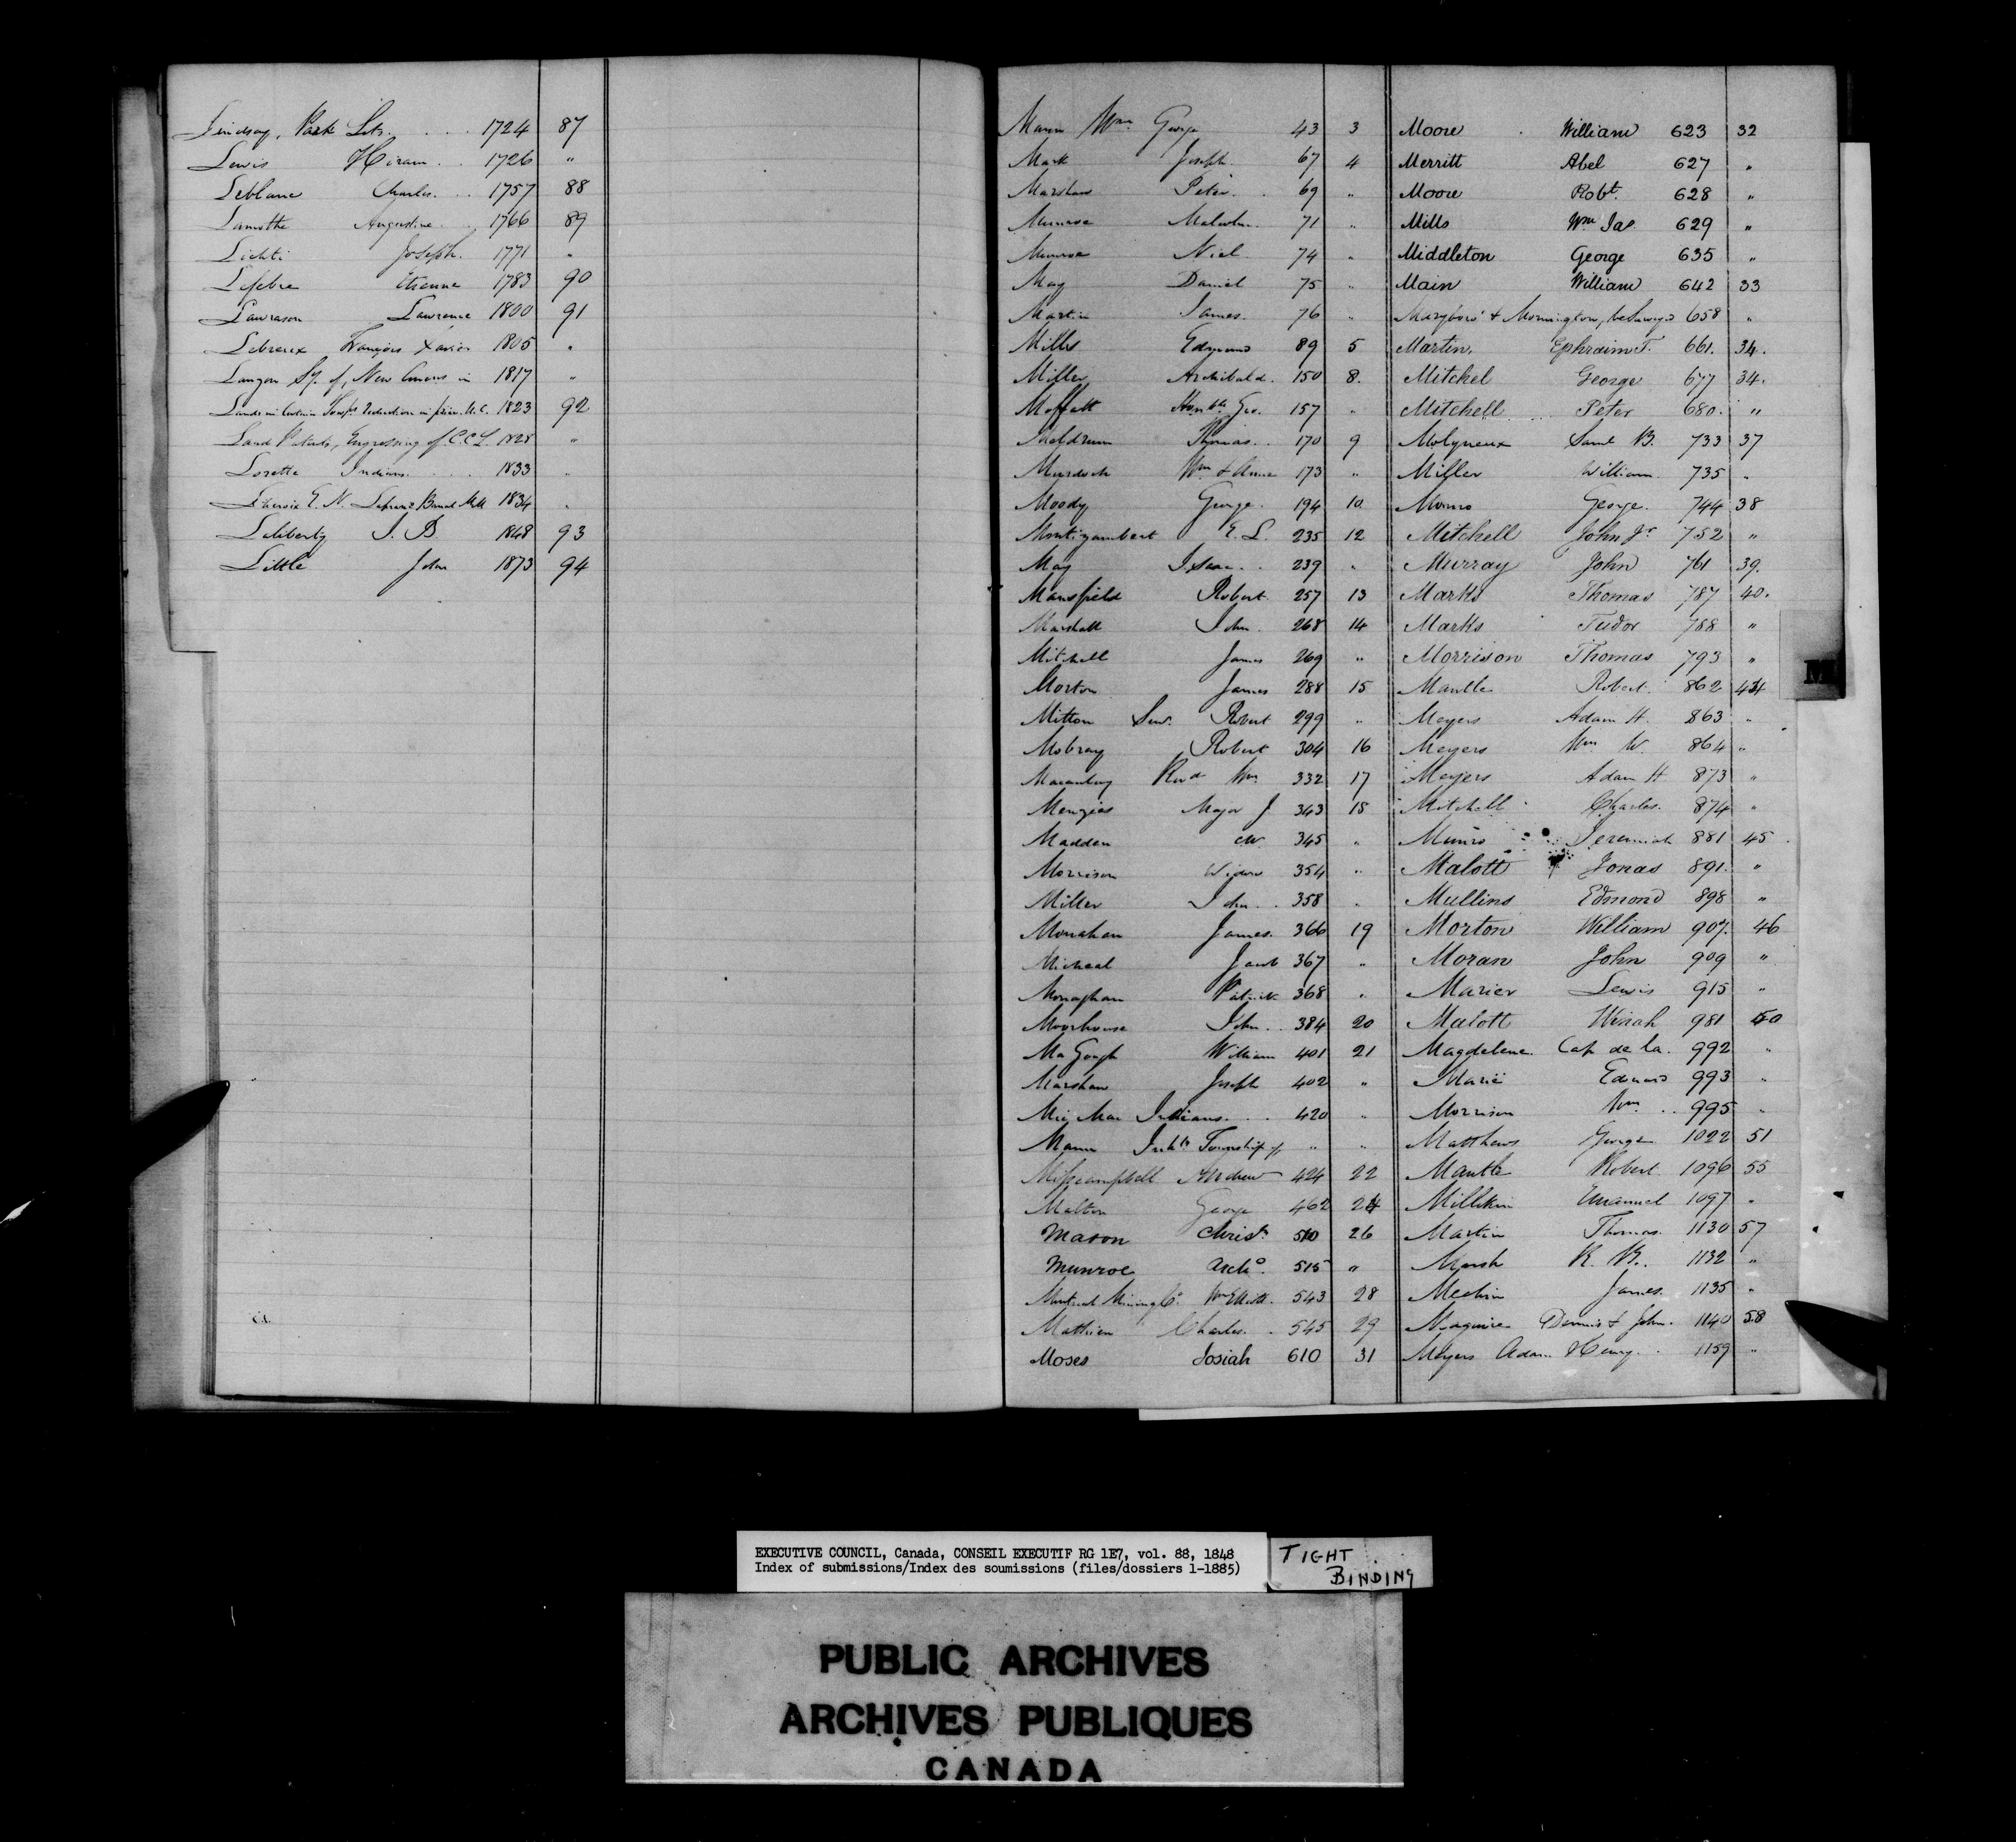 Lindsay, Park Lots. 1724 87
Lewis Hiram 1726 "
Leblanc Charles 1757 88
Lamothe Augustine 1766 89
Lichti Joseph 1771 "
Lefebre Etienne 1783 90
Lawrason Lawrence 1800 91
Lebreux François Xavier 1805 "
Lauzon Sy. of, New Concns in 1817 "
Lands in Certain Townps Reduction in price U.C. 1823 92
Land Patents, Engrossing of C.C.L. 1828 "
Lorette Indians 1833 "
Lacroix E. N. 1834 "
Laliberty J. B. 1848 93
Little John 1873 94
Mann Wm George 43 3
Mark Joseph 67 4
Marshaw Peter 69 "
Munroe Malcolm 71 "
Munroe Niel 74 "
May Daniel 75 "
Martin James 76 "
Mills Edmund 89 5
Miller Archibald 150 8.
Moffatt Honble Geo. 157 "
Meldrum Thomas 170 9
Murdoch Wm & Anne 173 "
Moody George 194 10
Montizambert E. L. 235 12
May Isaac 239 "
Mansfield Robert 257 13
Marshall John 268 14
Mitchell James 269 "
Morton James 288 15
Mitton Senr. Robert 299 "
Mobray Robert 304 16
Macaulay Revd Wm 332 17
Menzies Major J 343 18
Madden W 345 "
Morrison Widow 354 "
Miller John 358 "
Monahan James 366 19
Micheal Jacob 367 "
Monaghan Patrick 368 "
Moorhouse John 384 20
McGough William 401 21
Marshaw Joseph 402 "
Mic Mac Indians 420 "
Mann Inhts Township of " "
Misscampbell Andrew 424 22
Malton George 462 24
Mason Christr 510 26
Munroe Archd. 515 "
Montreal Mining Co. Wm Elliott 543 28
Mathieu Charles 545 29
Moses Josiah 610 31
Moore William 623 32
Merritt Abel 627 "
Moore Robt. 628 "
Mills Wm Jas. 629 "
Middleton George 635 "
Main William 642 33
Maryboro' & Mornington, be Surveyd 658 "
Martin, Ephraim T. 661. 34.
Mitchel George 677 34.
Mitchell Peter 680. "
Molyneux Saml B. 733 37
Miller William 735 "
Monro George 744 38
Mitchell John Jr 752 "
Murray John 761 39.
Marks Thomas 787 40.
Marks Tudor 788 "
Morrison Thomas 793 "
Mantle Robert 862 44
Meyers Adam H. 863 "
Meyers Wm W. 864 "
Meyers Adam H 873 "
Mitchell Charles 874 "
Munro Jeremiah 881 45
Malott Jonas 891. "
Mullins Edmond 898 "
Morton William 907. 46
Moran John 909 "
Marier Lewis 915 "
Malott 981 50
Magdelene. Cap de la. 992 "
Marié Edward 993 "
Morrison Wm 995 "
Matthews George 1022 51
Mantle Robert 1096 55
Millikin Emanuel 1097 "
Martin Thomas 1130 57
Marsh R. B. 1132 "
Mechin James 1135 "
Maguire Dennis & John. 1140 58
Meyers Adam Henry 1159 "
M
EXECUTIVE COUNCIL, Canada, CONSEIL EXECUTIF RG 1E7, vol. 88, 1848
Index of submissions/Index des soumissions (files/dossiers 1-1885)
TIGHT
BINDING
PUBLIC ARCHIVES
ARCHIVES PUBLIQUES
CANADA